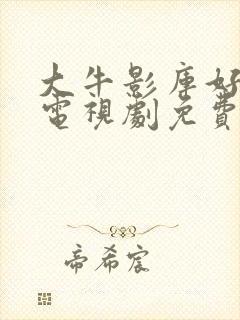 大牛影库好
電視劇免費
帝希宸